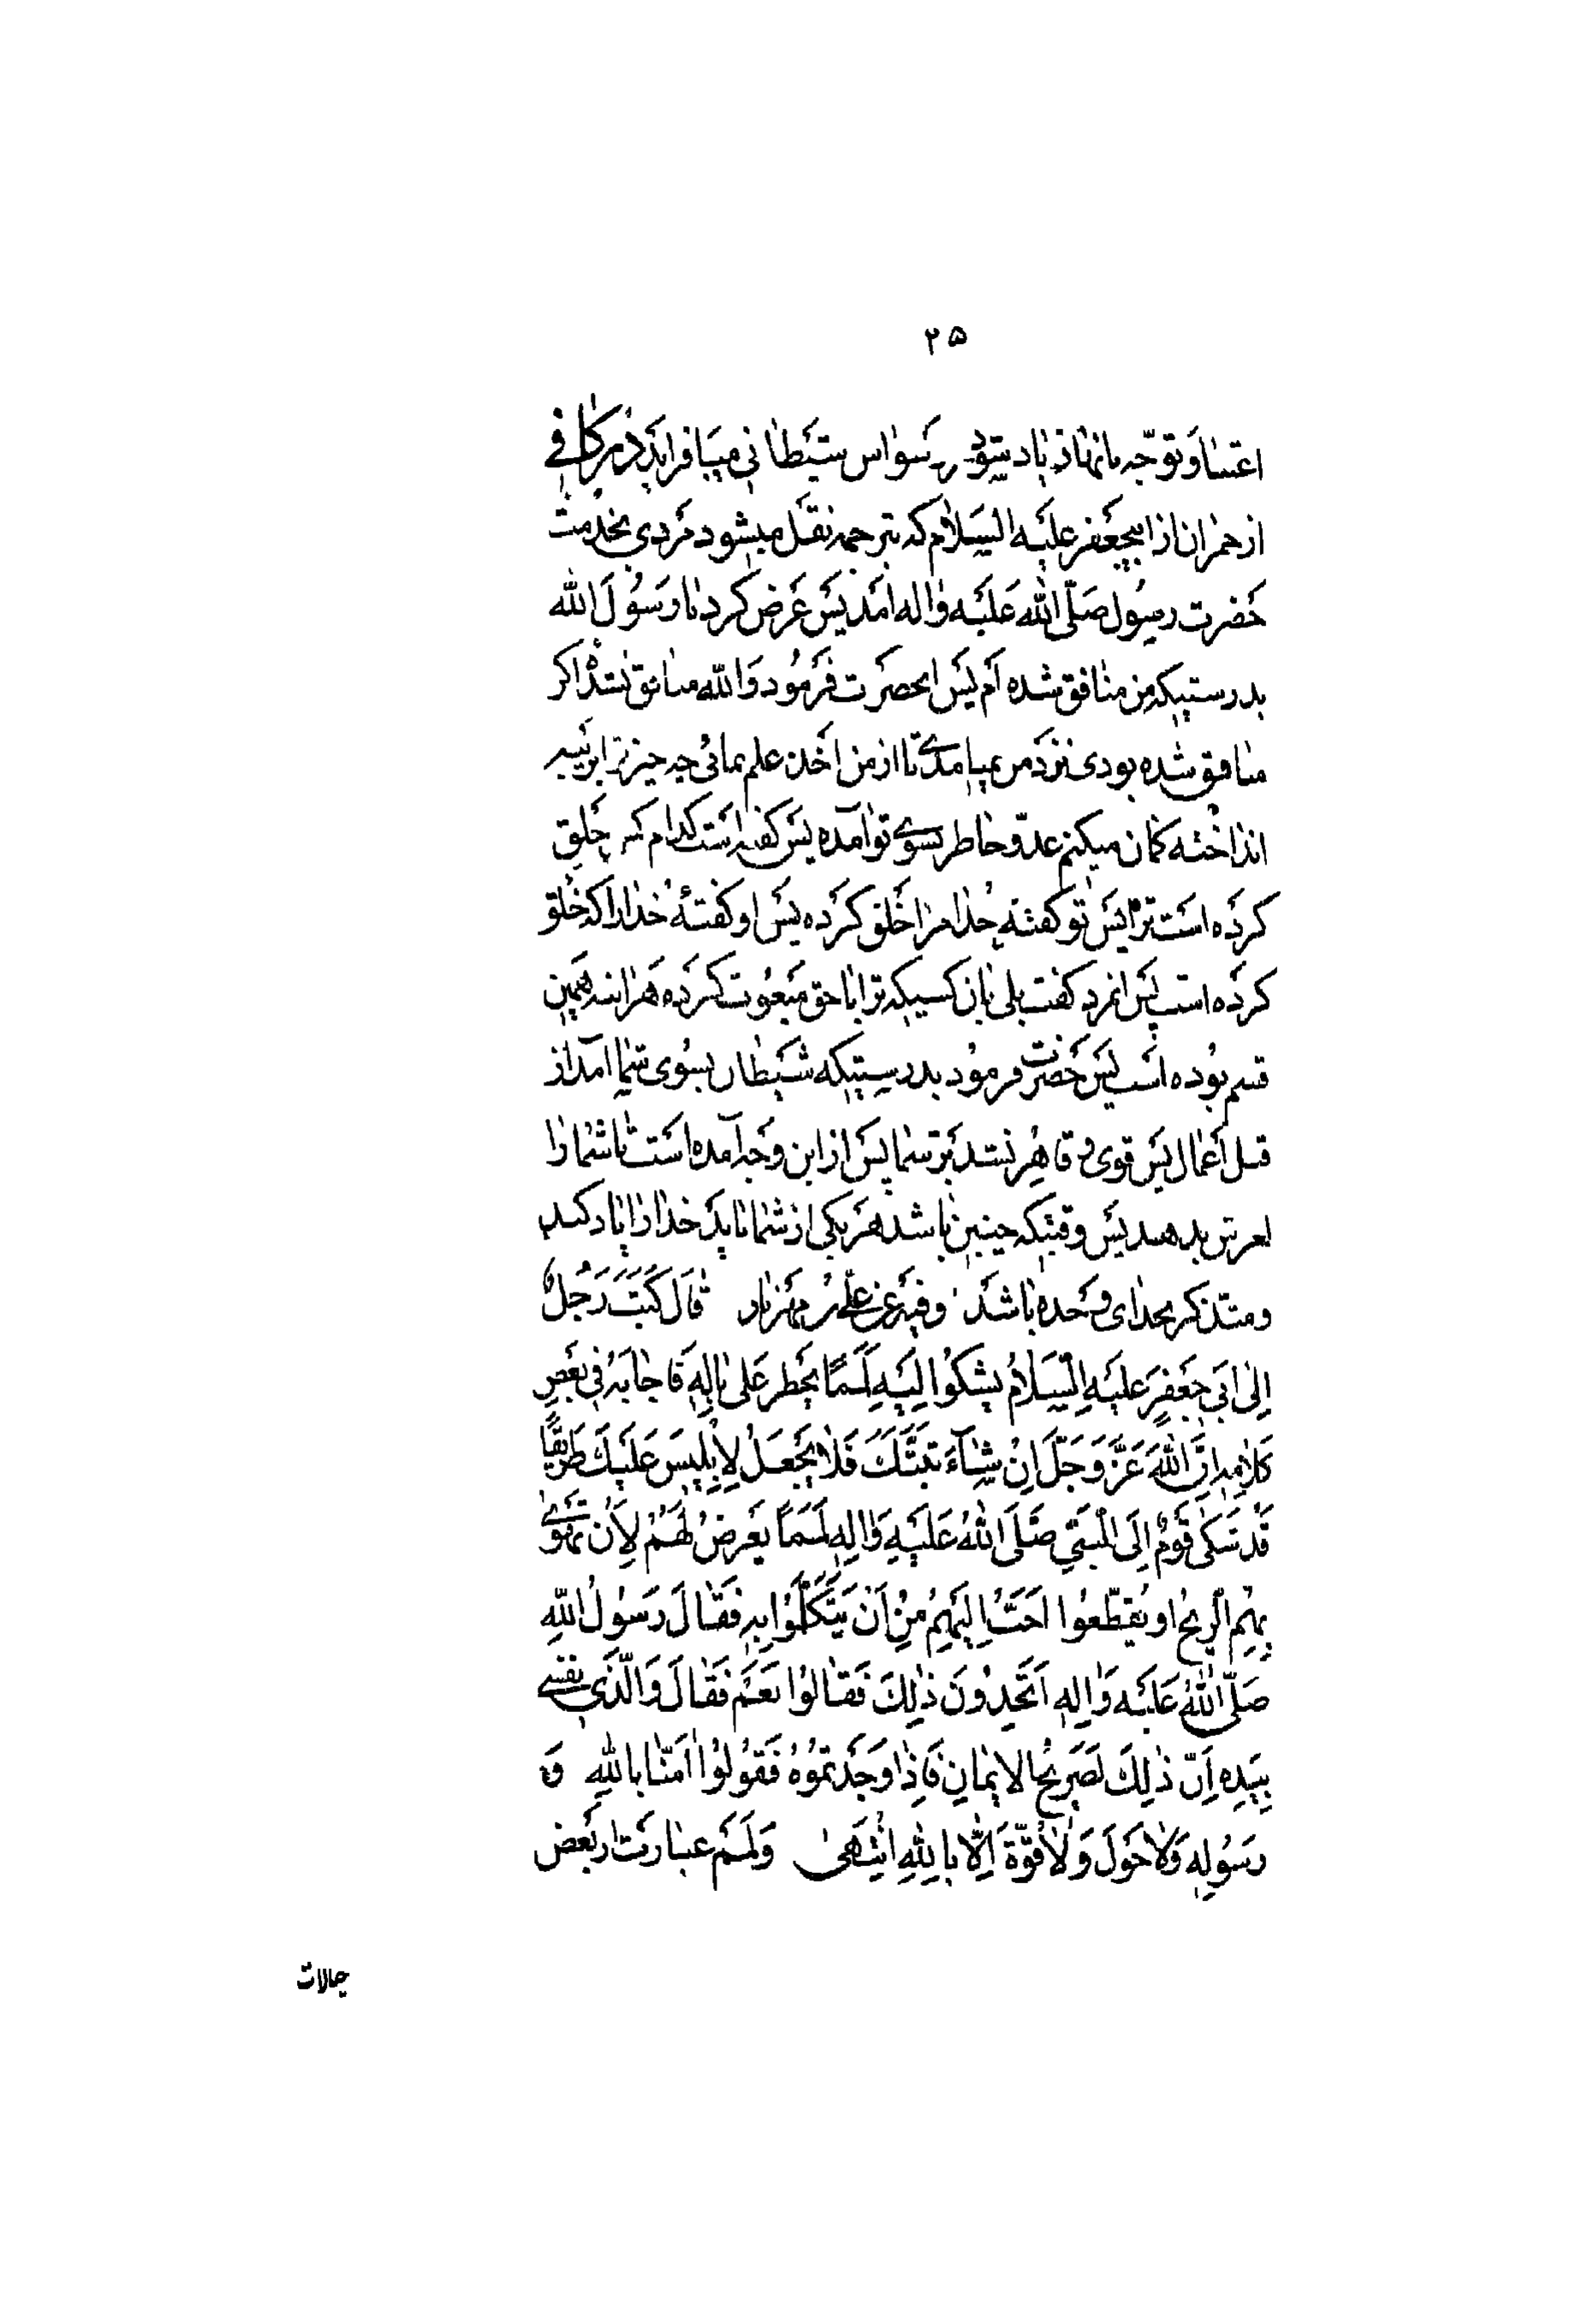 ۲۵
اعتنا و توجّه بانها زیاد شود وسواس شیطانی میافزاید در کافی
از حمران از ابیجعفر علیه السلام که بترجمه نقل میشود مردی بخدمت
حضرت رسول صلّی الله علیه واله امد پس عرض کرد یا رسول الله
بدرستیکه من منافق شده ام پس انحضرت فرمود والله منافق نشدهٔ اگر
منافق شده بودی نزد من نمیامدی تا از من اخذ علم نمائی چه چیز ترا بریبه
انداخته گمان میکنم عدوّ خاطر بسوی تو آمده پس گفته است کدام کس خلق
کرده است ترا پس تو گفته خدا مرا خلق کرده پس او گفته خدا را که خلق
کرده است پس انمرد گفت بلی بان کسیکه ترا با حق مبعوث کرده هراینه همین
قسم بوده است پس حضرت فرمود بدرستیکه شیطان بسوی شما آمد از
قبل اعمال پس قوی و قاهر نشد بر شما پس از این وجه آمده است تا شما را
لغزش بدهد پس وقتیکه چنین باشد هر یکی از شما باید خدا را یاد کند
و متذکر بخدای وحده باشد وفیه عن علی بن مهزیار قالَ کَتَبَ رَجُلٌ
إِلى ابی جَعفَرٍ عَلَیهِ السَّلامُ یشکوا الَیهِ لَمَماً یَخطر عَلی بالِهِ فَاجابَهُ فی بَعضِ
کَلامِهِ انَّ اللهَ عَزَّ وَجَلَّ اِنْ شآءَ ثَبَّتَکَ فَلا یَجعَلُ لِاِبلیسَ عَلَیکَ طَریقاً
قَدْ شَکی قَومٌ اِلَی النَّبیِّ صَلَّی اللهُ عَلَیهِ وَالِهِ لَمَماً یَعرِضُ لَهُم لِاَن تَهوی
بِهِم الرّیحُ او یُقطَّعوا احَبُّ اِلَیهِم مِنْ اَنْ یَتَکَلَّمُوا بِهِ فَقالَ رَسُولُ اللهِ
صَلَّی اللهُ عَلَیه وَالِهِ اَتَجِدُونَ ذلِکَ فَقالُوا نَعَم فَقالَ وَالَّذی نفسی
بِیَدِهِ اِنّ ذلِکَ لَصَریحُ الایمانِ فَاِذا وَجَدتمُوهُ فَقُولُوا امَنّا بِاللهِ وَ
رَسُولِهِ وَلا حَولَ وَلا قُوَّةَ اِلّا بِاللهِ انتهی وَلَمَم عبارت از بعض
حالات